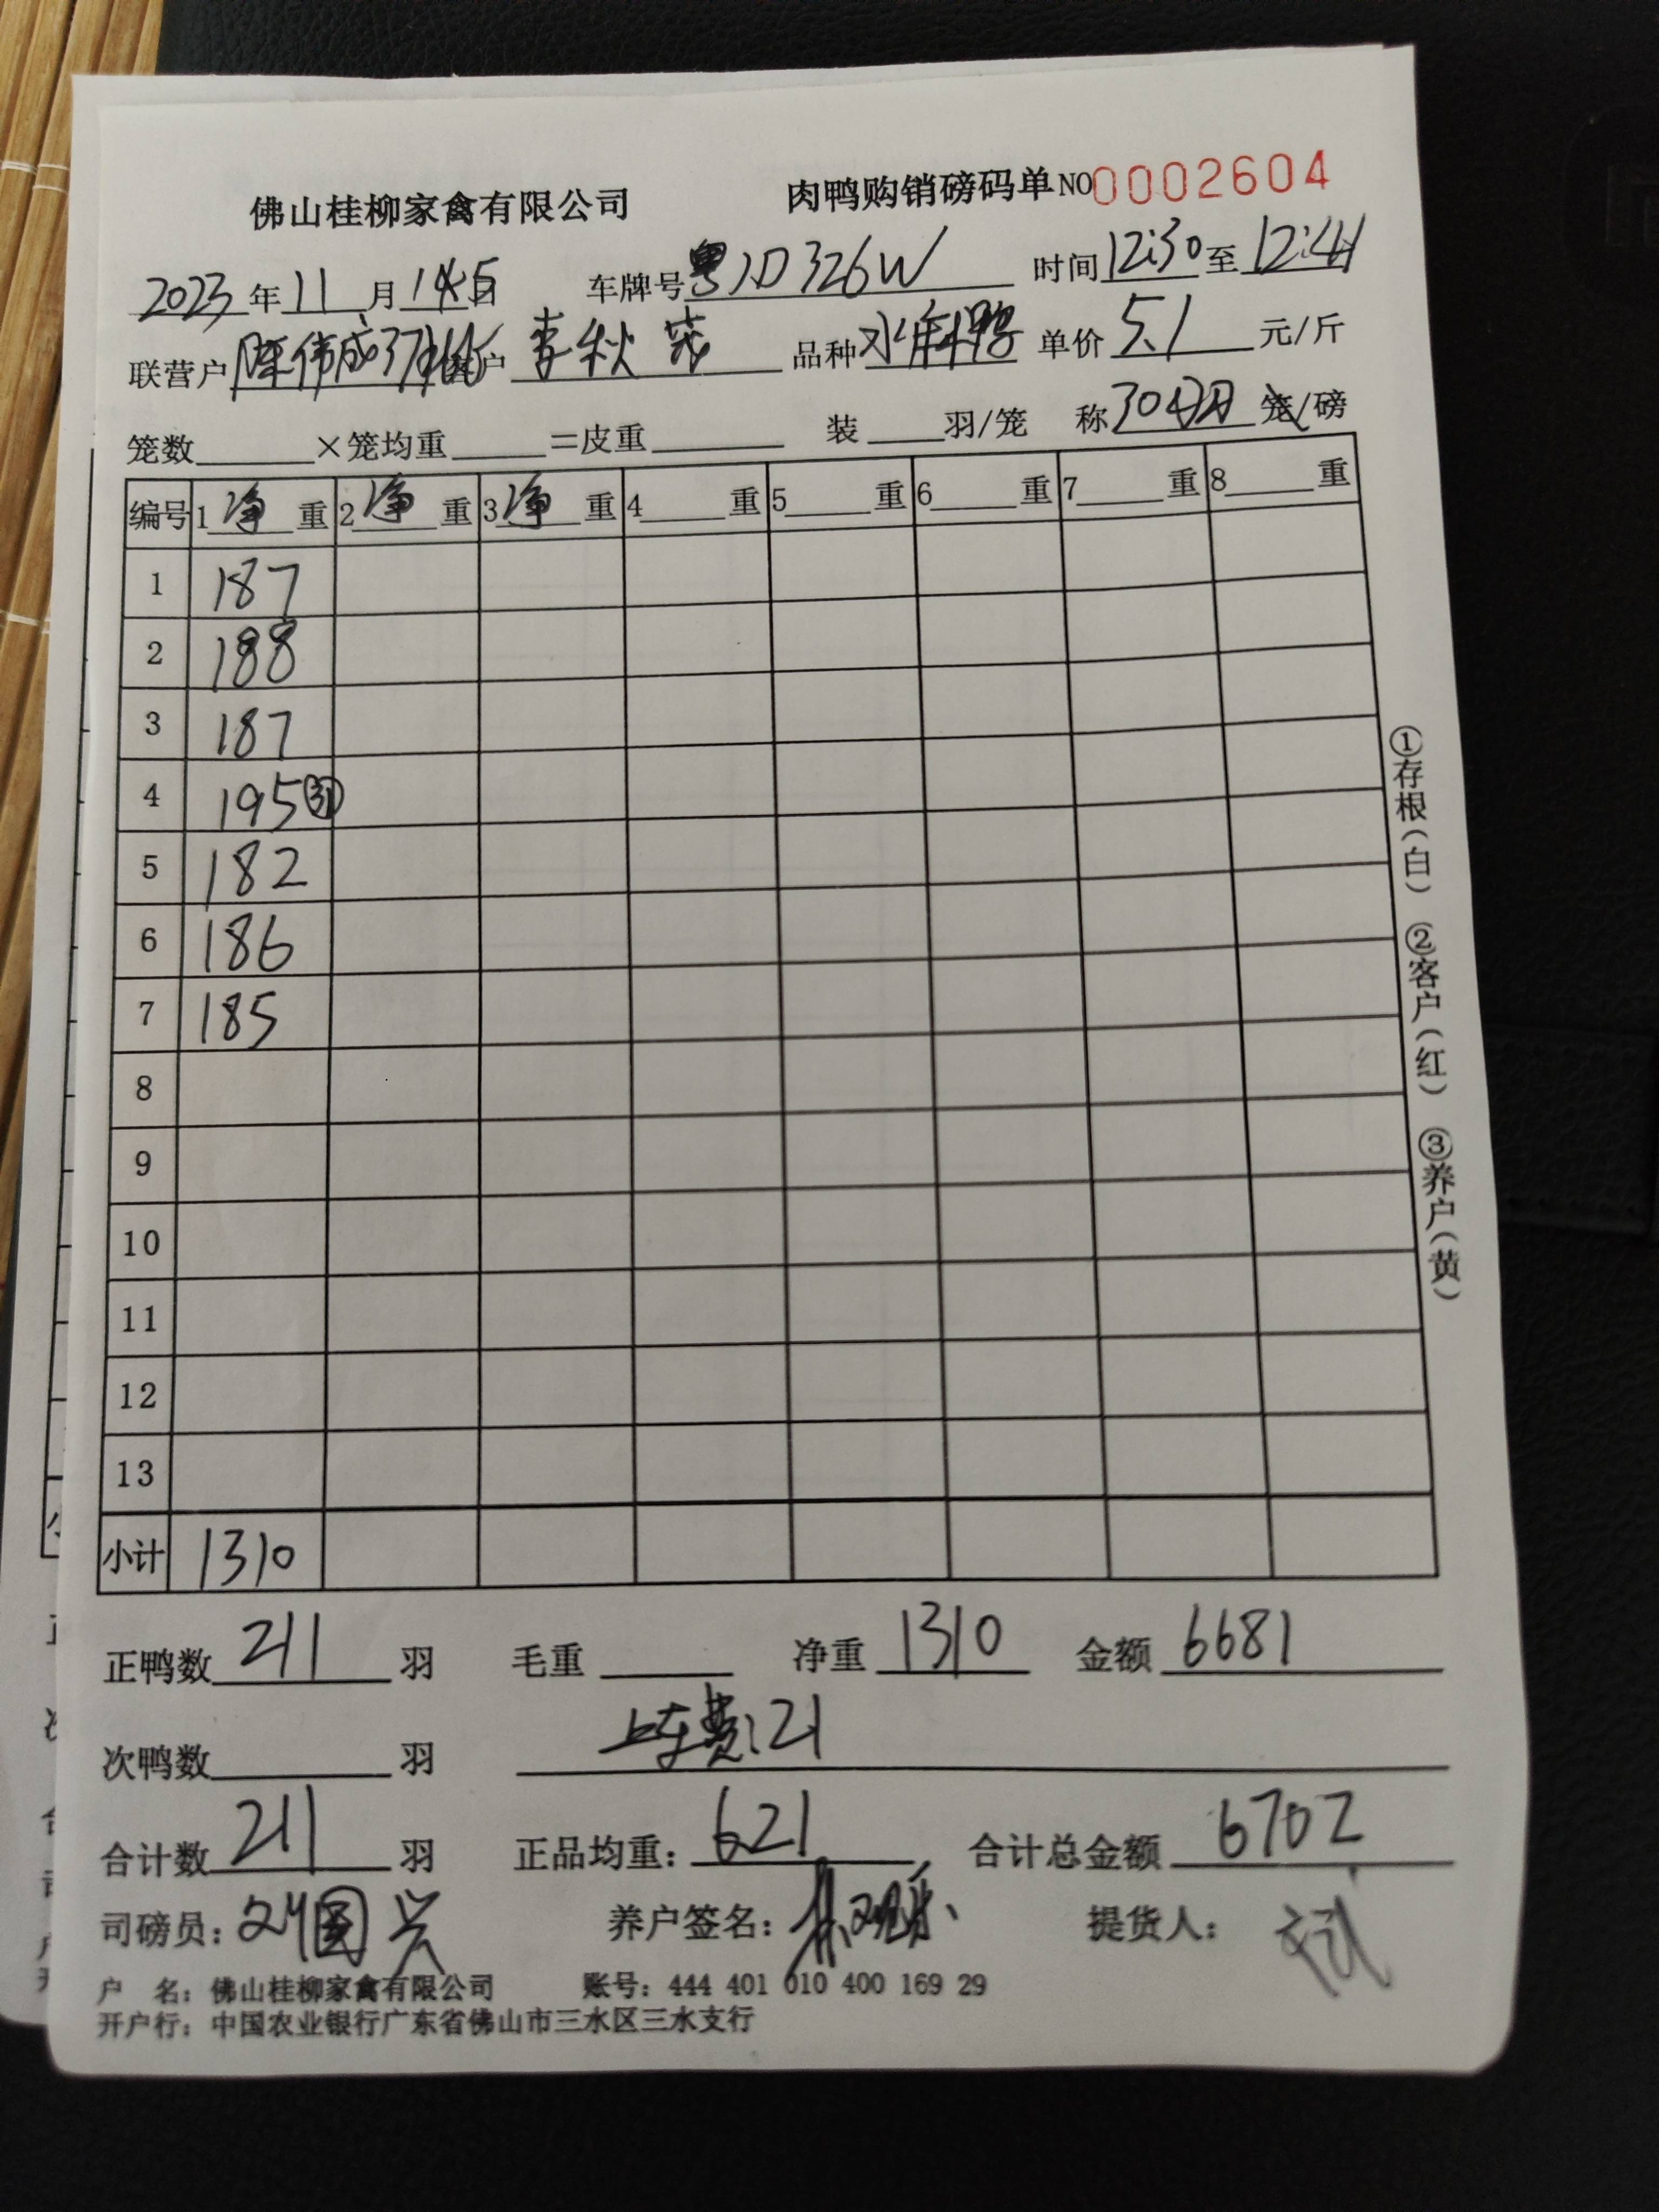 佛山桂柳家禽有限公司 肉鸭购销磅码单 NO 0002604
2023 年 11 月 日 车牌号 粤JD326W 时间 12:30 至 12:41
联营户 陈伟成 户 李秋 品种 水 鸭 单价 5.1 元/斤
笼数 ×笼均重 =皮重 装 羽/笼 称 30 笼/磅
编号 1 净 重 2 净 重 3 净 重 4 重 5 重 6 重 7 重 8 重
1 187
2 188
3 187
4 195 ㉛
5 182
6 186
7 185
8
9
10
11
12
13
小计 1310
正鸭数 211 羽 毛重 净重 1310 金额 6681
次鸭数 羽 上车费:21
合计数 211 羽 正品均重: 621 合计总金额 6702
司磅员: 刘国兴 养户签名: 提货人:
户 名: 佛山桂柳家禽有限公司 账号: 444 401 010 400 169 29
开户行: 中国农业银行广东省佛山市三水区三水支行
①存根(白) ②客户(红) ③养户(黄)